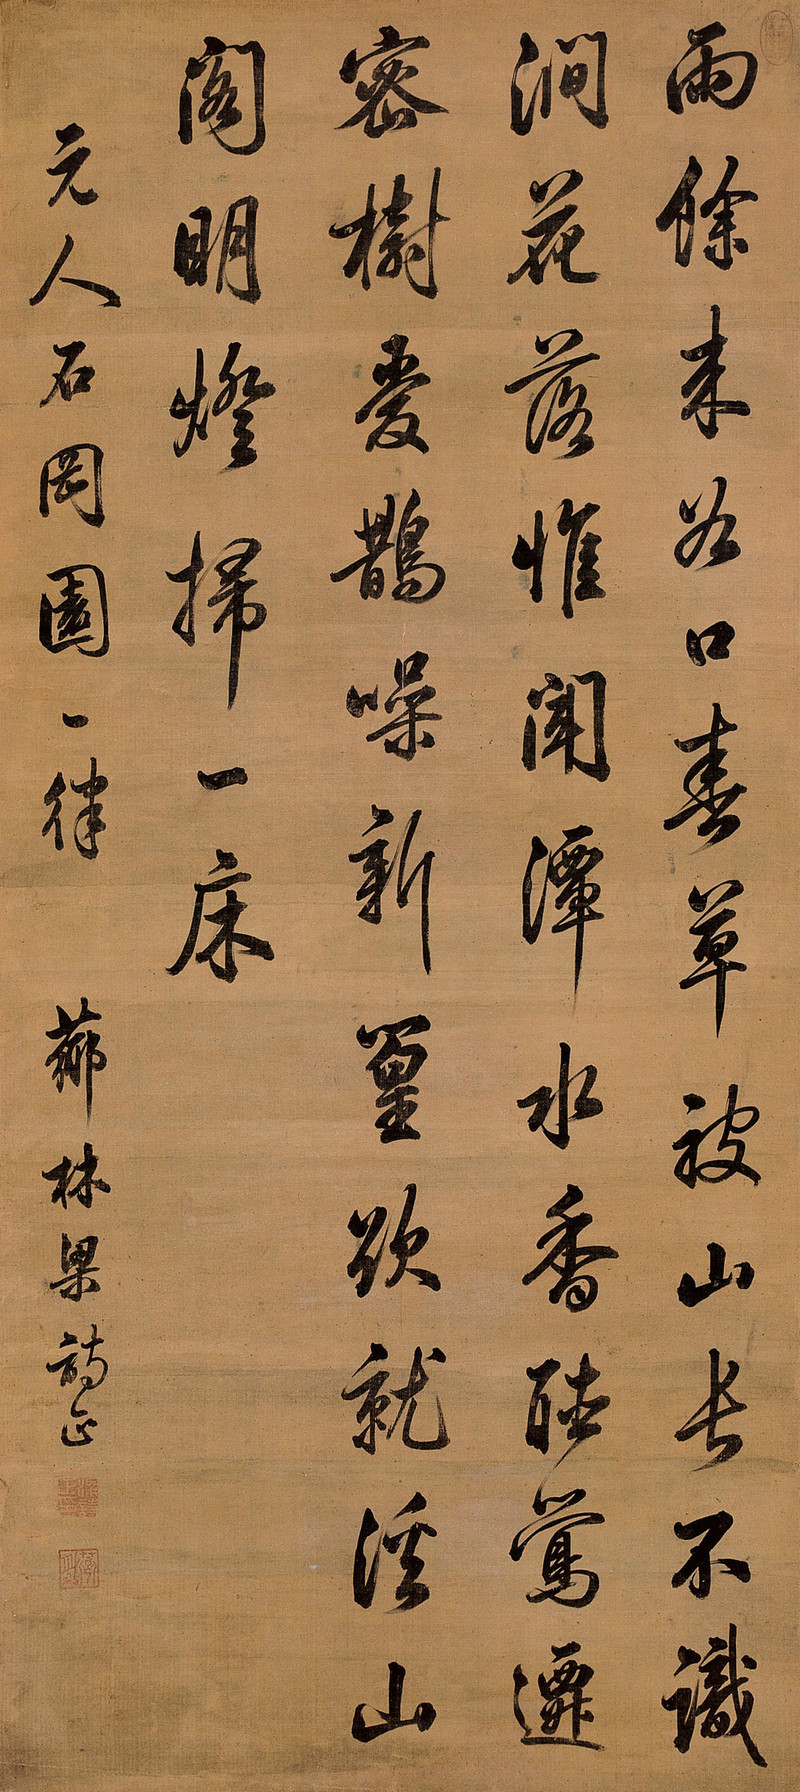 雨餘来谷口春草被山长不識
澗花落惟聞潭水香聴鶯遷
密樹愛鵲噪新篁欲就溪山
阁明燈掃一床
元人石岡園一律
薌林梁詩正